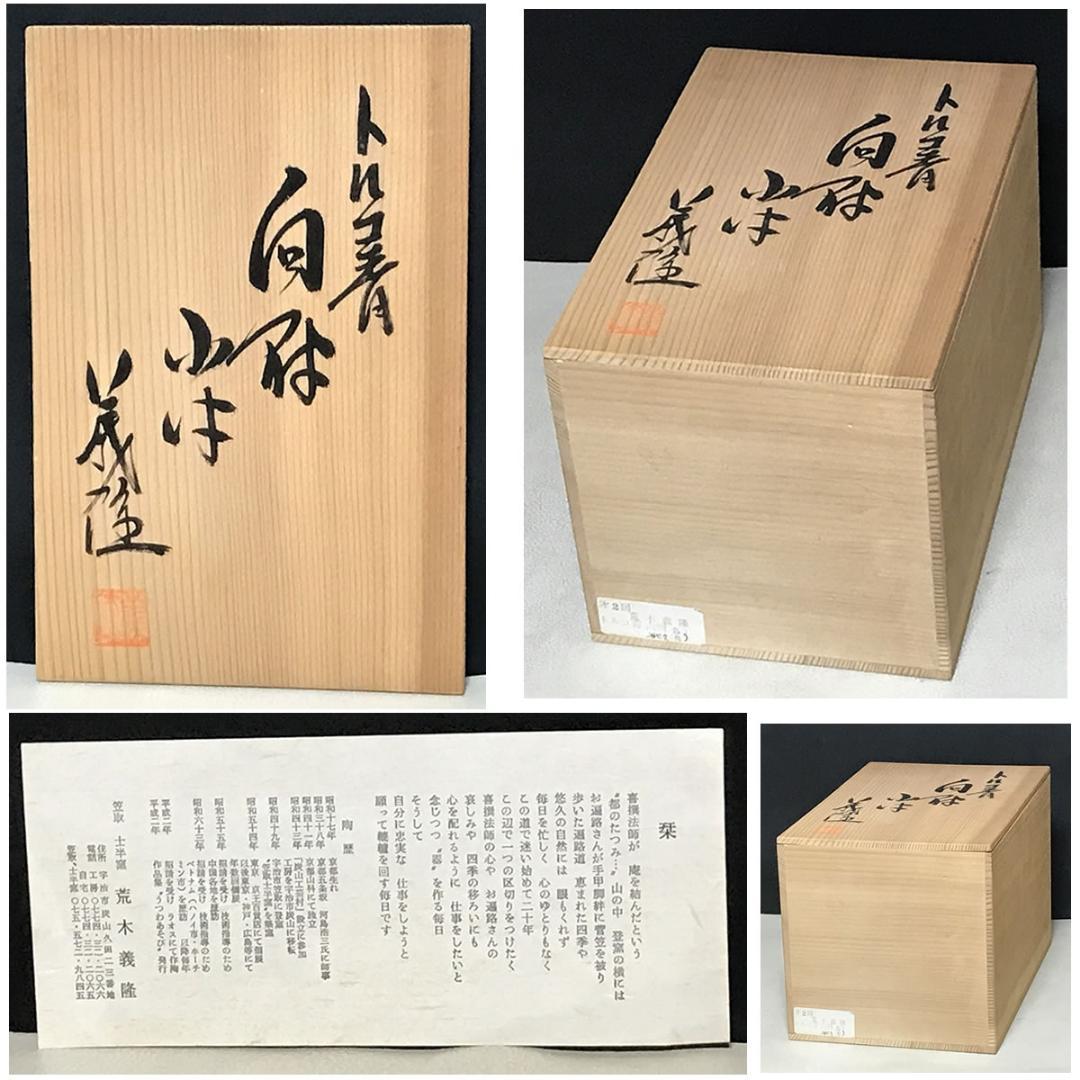 トルコ青
向付
小鉢
義隆
トルコ青
向付
小鉢
義隆
第2回
栞
喜撰法師が 庵を結んだという
“都のたつみ…”山の中 登窯の横には
お遍路さんが手甲脚絆に菅笠を被り
歩いた遍路道 恵まれた四季や
悠久の自然には 眼もくれず
毎日を忙しく 心のゆとりもなく
この道で迷い始めて二十年
この辺で一つの区切りをつけたく
喜撰法師の心や お遍路さんの
哀しみや 四季の移ろいにも
心を配れるように 仕事をしたいと
念じつつ“器”を作る毎日
そうして
自分に忠実な 仕事をしようと
願って轆轤を回す毎日です
陶歴
昭和十七年 京都生れ
昭和三十八年 京都五条坂 河島浩三氏に師事
昭和四十一年 京都山科にて独立
昭和四十三年 「炭山工芸村」設立に参加
工房を宇治市炭山に移転
昭和四十九年 宇治市笠取に登窯
“笠取士半窯”を築窯
昭和五十四年 東京 京王百貨店にて個展
以後東京・神戸・広島等にて
年数回個展
昭和五十五年 招請を受け 技術指導のため
中国各地を歴訪
昭和六十三年 招請を受け 技術指導のため
ベトナム(ハノイ市・ホーチ
ミン市)を歴訪 以降毎年
平成二年 招請を受け ラオスにて作陶
平成二年 作品集“うつわあそび”発行
笠取 士半窯 荒木義隆
住所 宇治市炭山久田二三番地
電話 工房 〇七七四・三二・二〇六六
自宅 〇七七四・三二・二〇六五
笠取、士半窯 〇七五・五七二・九八四五
トルコ青
向付
小鉢
義隆
第2回